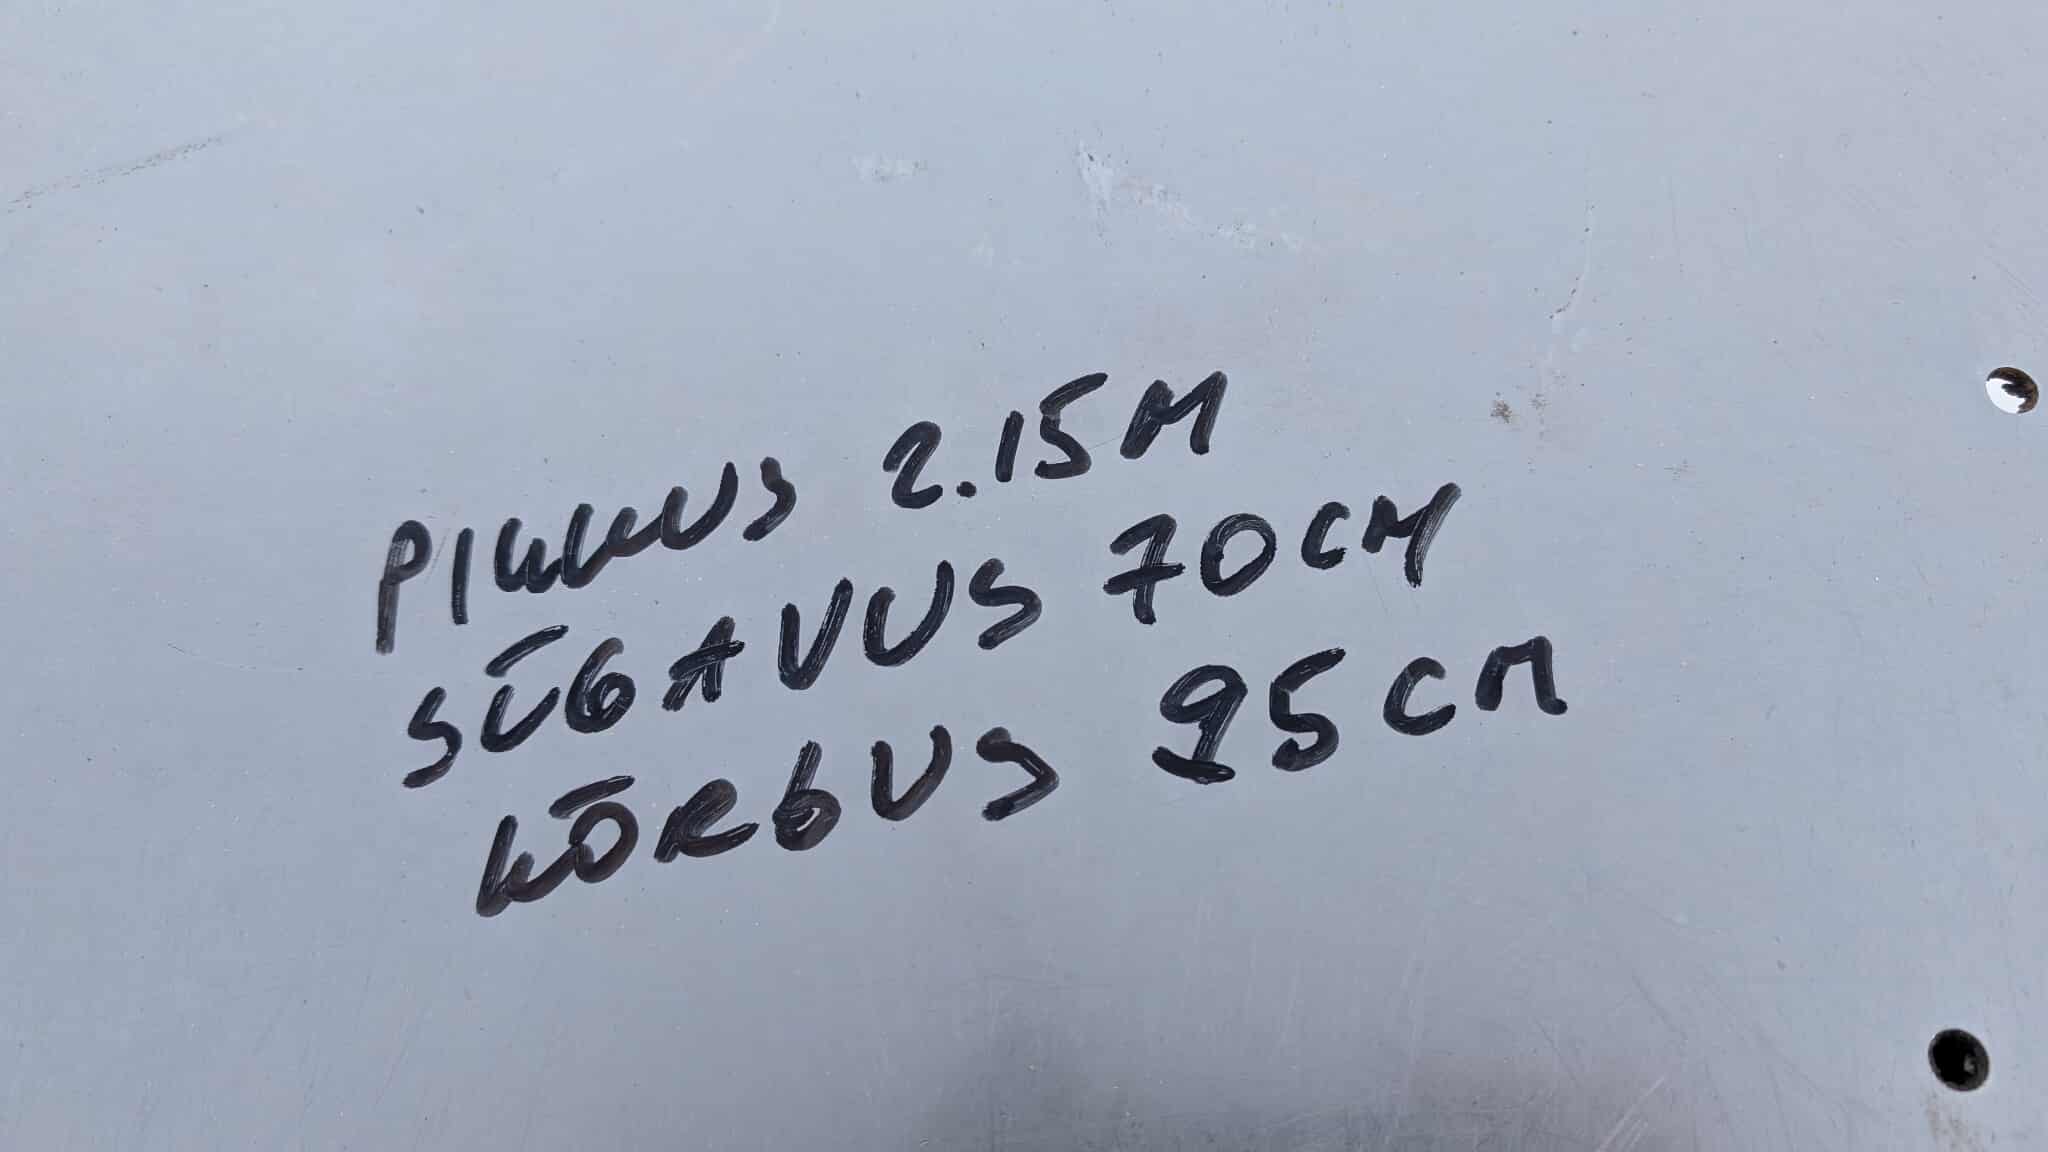 PIKKUS 2.15M
SÜGAVUS 70CM
KÕRGUS 95CM